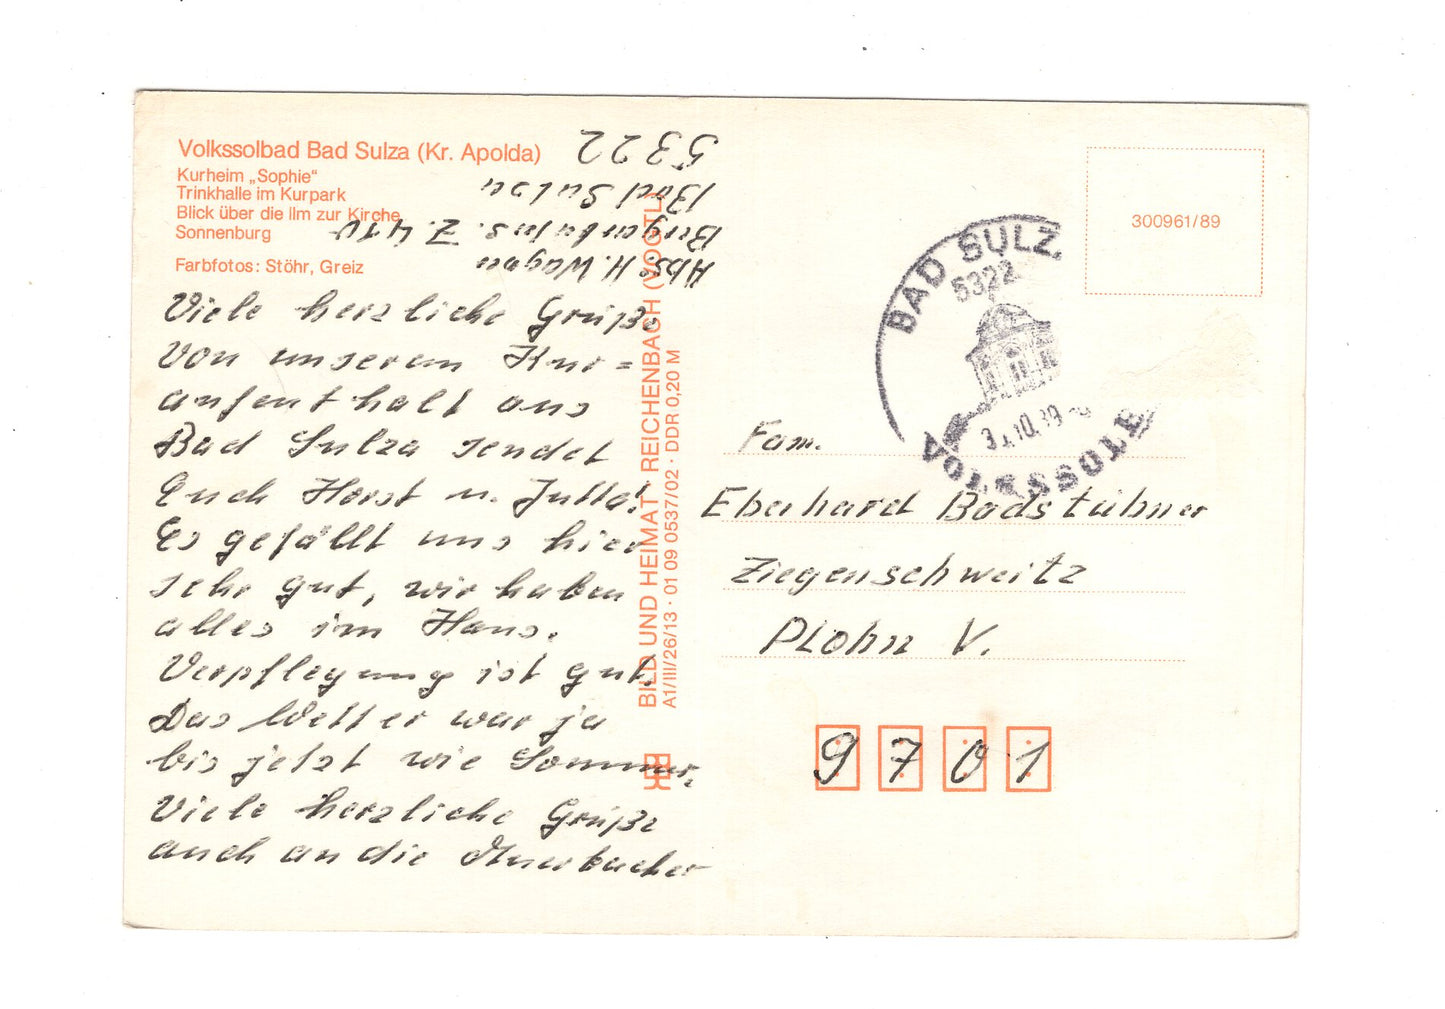 Volkssolbad Bad Sulza (Kr. Apolda)
Kurheim „Sophie“
Trinkhalle im Kurpark
Blick über die Ilm zur Kirche
Sonnenburg
Farbfotos: Stöhr, Greiz
Abs. H. Wagon
Z. 410
Bad Sulza
5322
Viele herzliche Grüße
von unserem Kur=
aufenthalt aus
Bad Sulza sendet
Euch Horst u. Jutta!
Es gefällt uns hier
sehr gut, wir haben
alles im Haus.
Verpflegung ist gut.
Das Wetter war ja
bis jetzt wie Sommer.
Viele herzliche Grüße
auch an die Auerbacher
BILD UND HEIMAT · REICHENBACH (VOGTL)
A1/III/26/13 · 01 09 0537/02 · DDR 0,20 M
300961/89
BAD SULZ
5322
10.89
VOLKSSOLB
Fam.
Eberhard Badstübner
Ziegenschweitz
Plohn V.
9701